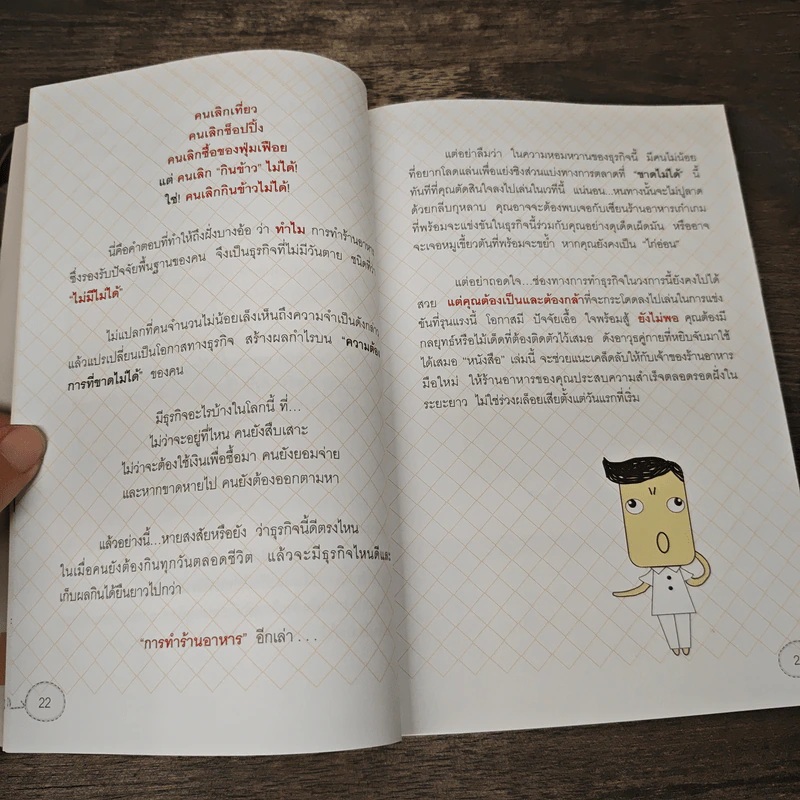 คนเลิกเที่ยว
คนเลิกช็อปปิ้ง
คนเลิกซื้อของฟุ่มเฟือย
แต่ คนเลิก "กินข้าว" ไม่ได้!
ใช่! คนเลิกกินข้าวไม่ได้!
นี่คือคำตอบที่ทำให้ถึงฝั่งบางอ้อ ว่า ทำไม การทำร้านอาหาร
ซึ่งรองรับปัจจัยพื้นฐานของคน จึงเป็นธุรกิจที่ไม่มีวันตาย ชนิดที่ว่า
"ไม่มีไม่ได้"
ไม่แปลกที่คนจำนวนไม่น้อยเล็งเห็นถึงความจำเป็นดังกล่าว
แล้วแปรเปลี่ยนเป็นโอกาสทางธุรกิจ สร้างผลกำไรบน "ความต้อง
การที่ขาดไม่ได้" ของคน
มีธุรกิจอะไรบ้างในโลกนี้ ที่...
ไม่ว่าจะอยู่ที่ไหน คนยังสืบเสาะ
ไม่ว่าจะต้องใช้เงินเพื่อซื้อมา คนยังยอมจ่าย
และหากขาดหายไป คนยังต้องออกตามหา
แล้วอย่างนี้...หายสงสัยหรือยัง ว่าธุรกิจนี้ดีตรงไหน
ในเมื่อคนยังต้องกินทุกวันตลอดชีวิต แล้วจะมีธุรกิจไหนดีและ
เก็บผลกินได้ยืนยาวไปกว่า
"การทำร้านอาหาร" อีกเล่า . . .
22
แต่อย่าลืมว่า ในความหอมหวานของธุรกิจนี้ มีคนไม่น้อย
ที่อยากโลดแล่นเพื่อแย่งชิงส่วนแบ่งทางการตลาดที่ "ขาดไม่ได้" นี้
ทันทีที่คุณตัดสินใจลงไปเล่นในเวทีนี้ แน่นอน...หนทางนั้นจะไม่ปูลาด
ด้วยกลีบกุหลาบ คุณอาจจะต้องพบเจอกับเซียนร้านอาหารเก๋าเกม
ที่พร้อมจะแข่งขันในธุรกิจนี้ร่วมกับคุณอย่างดุเด็ดเผ็ดมัน หรืออาจ
จะเจอหมูเขี้ยวตันที่พร้อมจะขย้ำ หากคุณยังคงเป็น "ไก่อ่อน"
แต่อย่าถอดใจ...ช่องทางการทำธุรกิจในวงการนี้ยังคงไปได้
สวย แต่คุณต้องเป็นและต้องกล้าที่จะกระโดดลงไปเล่นในการแข่ง
ขันที่รุนแรงนี้ โอกาสมี ปัจจัยเอื้อ ใจพร้อมสู้ ยังไม่พอ คุณต้องมี
กลยุทธ์หรือไม้เด็ดที่ต้องติดตัวไว้เสมอ ดังอาวุธคู่กายที่หยิบจับมาใช้
ได้เสมอ "หนังสือ" เล่มนี้ จะช่วยแนะเคล็ดลับให้กับเจ้าของร้านอาหาร
มือใหม่ ให้ร้านอาหารของคุณประสบความสำเร็จตลอดรอดฝั่งใน
ระยะยาว ไม่ใช่ร่วงผล็อยเสียตั้งแต่วันแรกที่เริ่ม